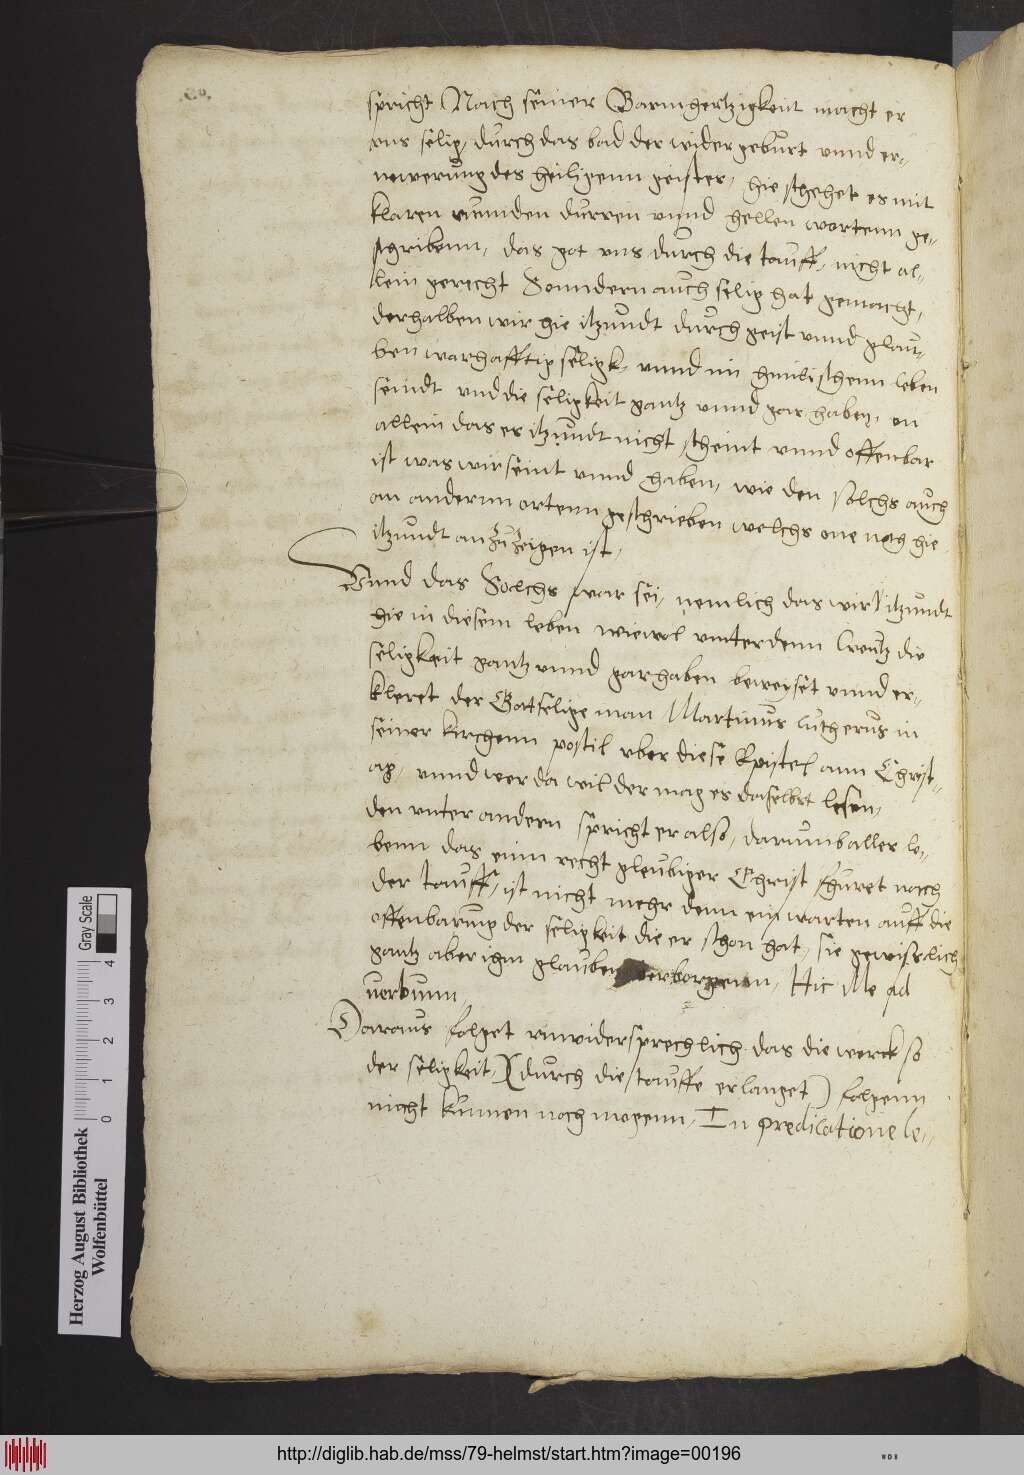 spricht Nach seiner Barmhertzigkeit macht er
vns selig, durch das bad der widergeburt vnnd er-
newerung des heiligenn geistes, hie stehet es mit
klaren runden durren vnnd hellen wortenn ge-
schribenn, das got vns durch die tauff, nicht al-
lein gerecht Sonndern auch selig hat gemacht,
derhalben wir hie itzundt durch geist vnnd glau-
ben warhafftig selig, vnnd im himlischenn leben
seindt vnd die seligkeit gantz vnnd gar haben, on
allein das es itzundt nicht scheint vnnd offenbar
ist was wir seint vnnd haben, wie den solchs auch
an andernn ortenn geschrieben welchs one noth hie
itzundt anzuzeigen ist,
Vnnd das Solchs war sei, nemlich das wir itzundt
hie in diesem leben wiewol vnnter dem Creutz die
seligkeit gantz vnnd gar haben beweyset vnnd er-
kleret der Gottselige man Martinus lutherus in
seiner kirchenn postil vber diese Epistel am Christ-
ag, vnnd wer da wil der mag es daselbst lesen,
den vnter andern spricht er also, darumb aller le-
benn das einn recht gleubiger Christ fhuret nach
der tauff, ist nicht mehr denn ein warten auff die
offenbarung der seligkeit die er schon hat, sie gewislich
gantz aber ihm glauben verborgenn, Hic Me ad
verbum,
Daraus folget vnwidersprechlich das die werck so
der seligkeit, (durch die tauffe erlanget) folgenn
nicht kunnen noch mogenn, In predicatione le-
Herzog August Bibliothek
Wolfenbüttel
Gray Scale
0 1 2 3 4
http://diglib.hab.de/mss/79-helmst/start.htm?image=00196